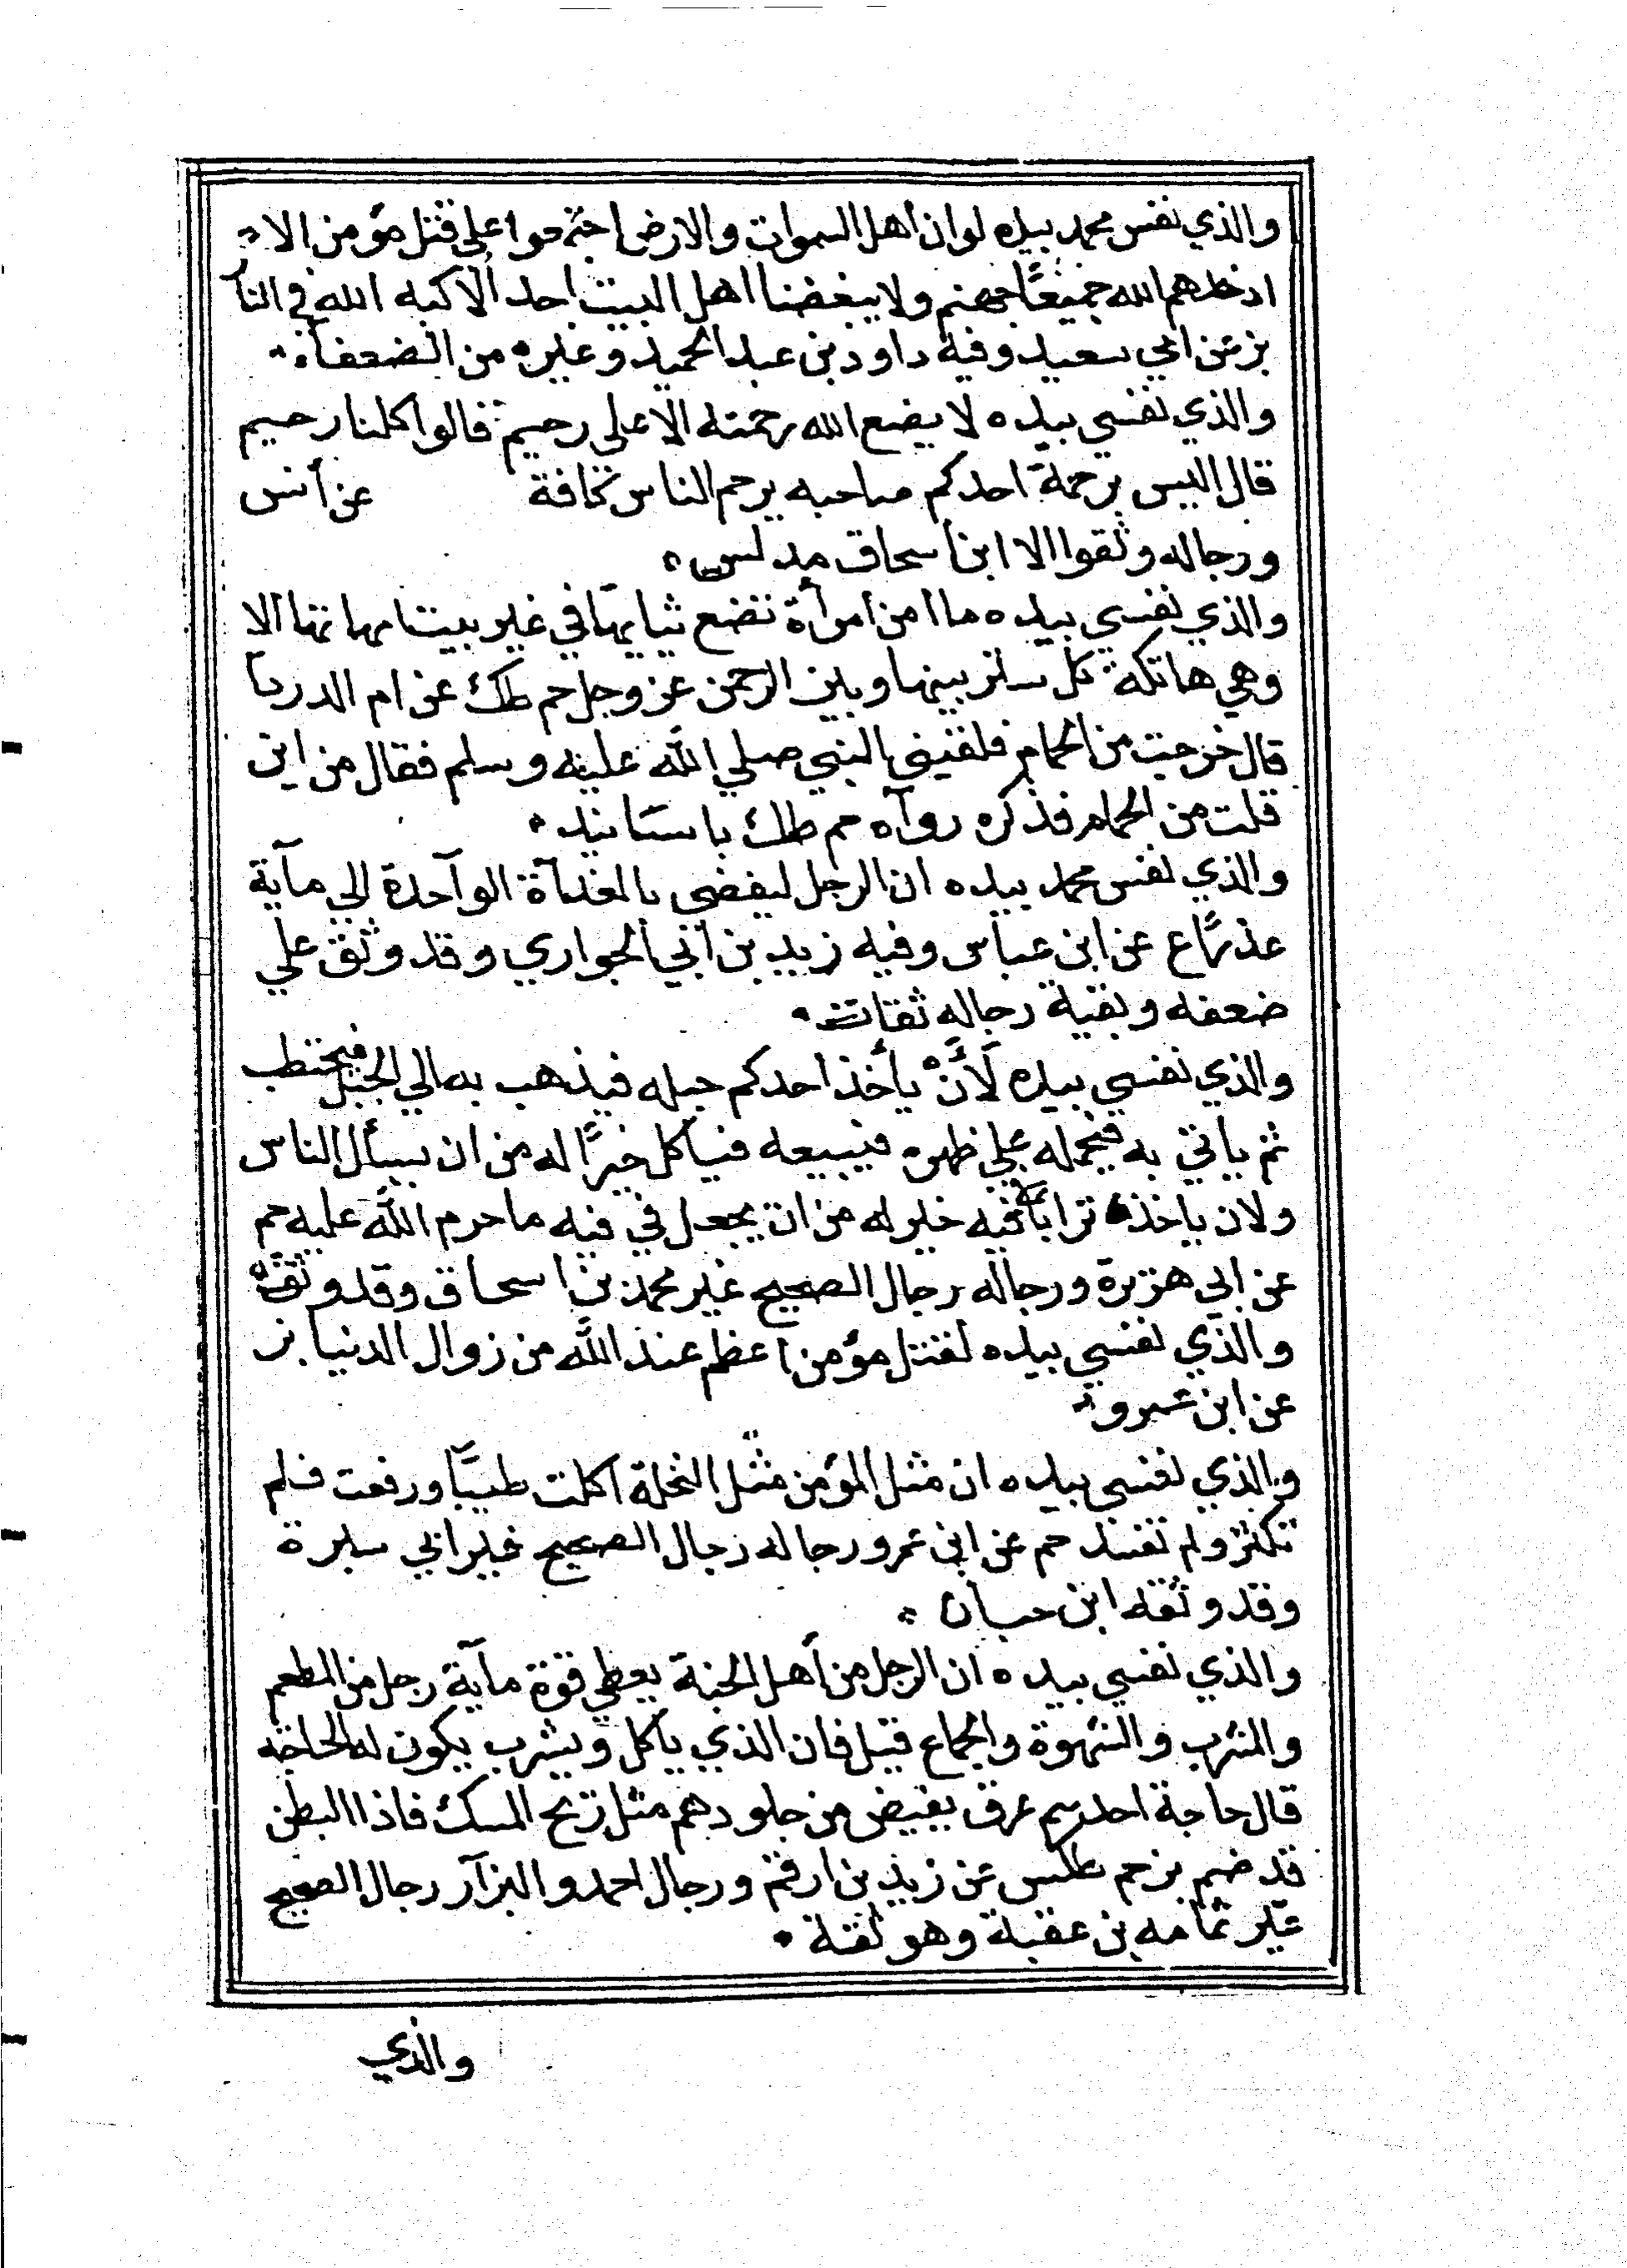 والذي نفس محمد بيده لو ان اهل السموات والارض اجتمعوا على قتل مؤمن الا
ادخلهم الله جميعًا جهنم ولا يبغضنا اهل البيت احد الا كبه الله في النار
بز عن ابي سعيد وفيه داود بن عبد الحميد وغيره من الضعفآء
والذي نفسي بيده لا يضع الله رحمته الا على رحيم قالوا كلنا رحيم
قال ليس برحمة احدكم صاحبه يرحم الناس كافة عن أنس
ورجاله وثقوا الا ابن اسحاق مدلس
والذي نفسي بيده ما من امرأة تضع ثيابها في غير بيت امهاتها الا
وهي هاتكة كل ستر بينها وبين الرحمن عز وجل حم طك عن ام الدردآ
قال خرجت من الحمام فلقيني النبي صلي الله عليه وسلم فقال من اين
قلت من الحمام فذكره رواه حم طك باسانيد
والذي نفس محمد بيده ان الرجل ليفضي بالغدآة الوآحدة الي مآية
عذرآ ع عن ابن عباس وفيه زيد بن أبي الحواري وقد وثق علي
ضعفه وبقية رجاله ثقات
والذي نفسي بيده لَأَنْ يأخذ احدكم حبله فيذهب به الي الجبل فيحتطب
ثم ياتي به فيحمله علي ظهره فيبيعه فيأكل خيرًا له من ان يسأل الناس
ولان ياخذ ترابا فيه خير له من ان يجعل في فيه ما حرم الله عليه حم
عن ابي هريرة ورجاله رجال الصحيح غير محمد بن اسحاق وقد وثق
والذي نفسي بيده لقتل مؤمن اعظم عند الله من زوال الدنيا بز
عن ابن عمرو
والذي نفسي بيده ان مثل المؤمن مثل النحلة اكلت طيبًا ورفعت فلم
تكثر ولم تفسد حم عن ابن عمرو رجاله رجال الصحيح غير ابي سبرة
وقد وثقه ابن حبان
والذي نفسي بيده ان الرجل من أهل الجنة يعطي قوة مآية رجل من المطعم
والشرب والشهوة والجماع قيل فان الذي ياكل ويشرب يكون له الحاجة
قال حاجة احدهم عرق يفيض من جلودهم مثل ريح المسك فاذا البطن
قد ضم بز حم طكس عن زيد بن ارقم ورجال احمد والبزآر رجال الصحيح
غير ثمامه بن عقبة وهو ثقة
والذي